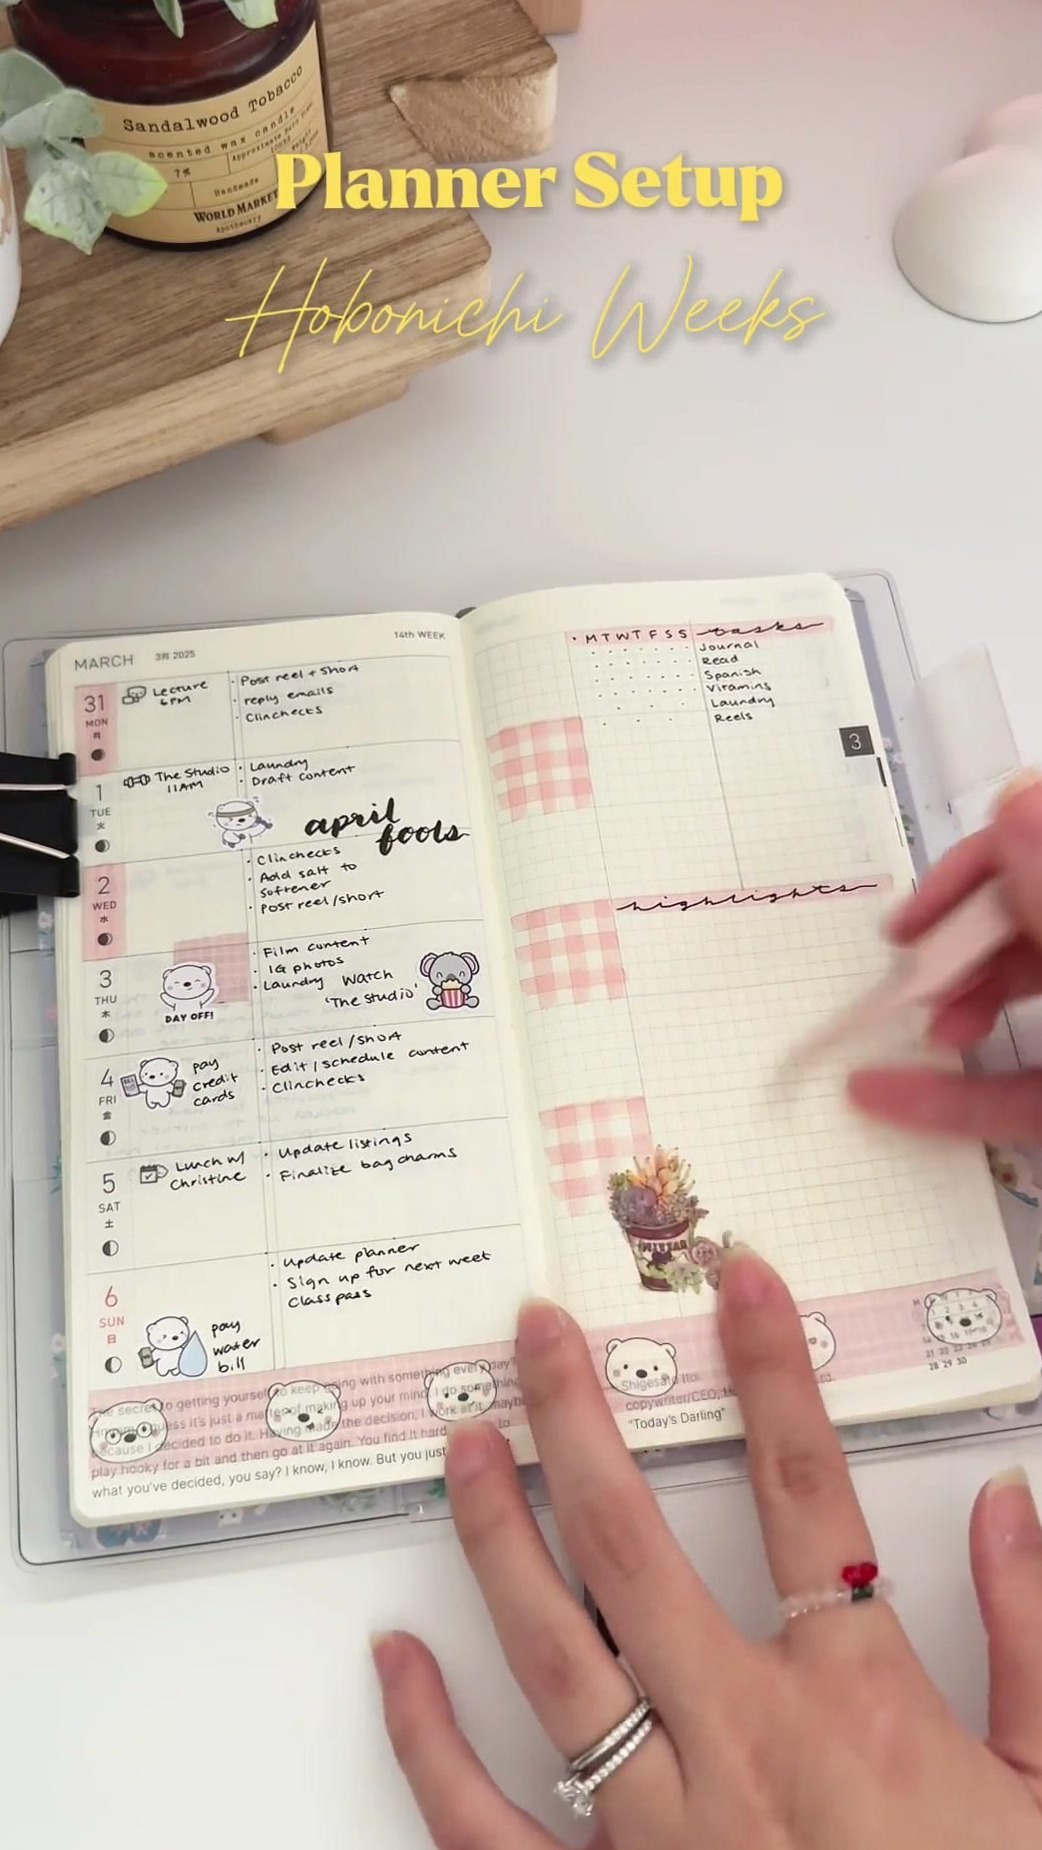 Sandalwood Tobacco
scented wax candle
7%
Handmade
WORLD MARKET
Apothecary
Planner Setup
Hobonichi Weeks
MARCH 3月 2025
14th WEEK
31
MON
月
Lecture
6PM
• Post reel + short
• reply emails
• Clinchecks
1
TUE
火
The Studio
11AM
• Laundry
• Draft content
april
fools
2
WED
水
• Clinchecks
• Add salt to
softener
• Post reel/short
3
THU
木
DAY OFF!
• Film content
• IG photos
• Laundry
Watch
'The Studio'
4
FRI
金
pay
credit
cards
• Post reel/short
• Edit/schedule content
• Clinchecks
5
SAT
土
Lunch w/
Christine
• Update listings
• Finalize bag charms
6
SUN
日
pay
water
bill
• Update planner
• Sign up for next week
Classpass
The secret to getting yourself to keep going with something every day?
guess it's just a matter of making up your mind. I do something
because I decided to do it. Having made the decision, I work at it, maybe
play hooky for a bit and then go at it again. You find it hard to
what you've decided, you say? I know, I know. But you just
• M T W T F S S tasks
Journal
Read
Spanish
Vitamins
Laundry
Reels
3
highlights
Shigesato Itoi
copywriter/CEO,
"Today's Darling"
28 29 30